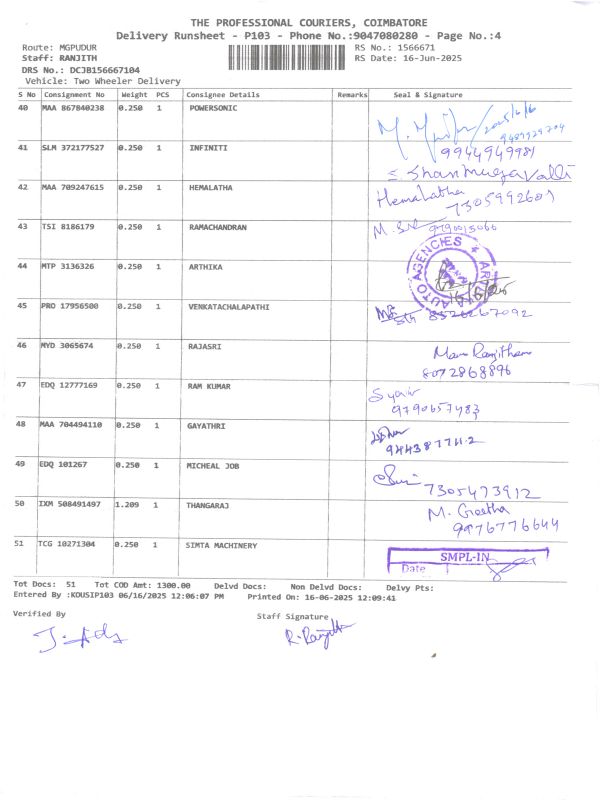 THE PROFESSIONAL COURIERS, COIMBATORE
Delivery Runsheet - P103 - Phone No.:9047080280 - Page No.:4
Route: MGPUDUR RS No.: 1566671
Staff: RANJITH RS Date: 16-Jun-2025
DRS No.: DCJB156667104
Vehicle: Two Wheeler Delivery
S No Consignment No Weight PCS Consignee Details Remarks Seal & Signature
40 MAA 867840238 0.250 1 POWERSONIC
41 SLM 372177527 0.250 1 INFINITI 9944949981
S. Shanmugavalli
42 MAA 709247615 0.250 1 HEMALATHA Hemalatha
7305992601
43 TSI 8186179 0.250 1 RAMACHANDRAN 9790015066
44 MTP 3136326 0.250 1 ARTHIKA AUTO AGENCIES
45 PRO 17956500 0.250 1 VENKATACHALAPATHI 8526267092
46 MYD 3065674 0.250 1 RAJASRI Ranjitham
8072868896
47 EDQ 12777169 0.250 1 RAM KUMAR
9790657483
48 MAA 704494110 0.250 1 GAYATHRI
9443877412
49 EDQ 101267 0.250 1 MICHEAL JOB
7305473912
50 IXM 508491497 1.209 1 THANGARAJ M. Geetha
9976776644
51 TCG 10271304 0.250 1 SIMTA MACHINERY SMPL-IN
Date
Tot Docs: 51 Tot COD Amt: 1300.00 Delvd Docs: Non Delvd Docs: Delvy Pts:
Entered By :KOUSIP103 06/16/2025 12:06:07 PM Printed On: 16-06-2025 12:09:41
Verified By Staff Signature
R. Ranjith